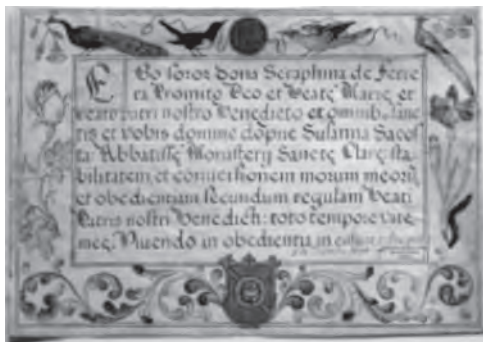 Ego soror dona Seraphina de Ferre
ra Promito Deo et Beatę Marię et
beato patri nostro Benedicto et omnib. sanc
tis et vobis domine dopne Susanna Sacos
ta Abbatissę Monasterij Sanctę Clarę sta
bilitatem et conversionem morum meorū
et obedientiam secundum regulam Beati
Patris nostri Benedicti: toto tempore vite
meę. Vivendo in obedientia in